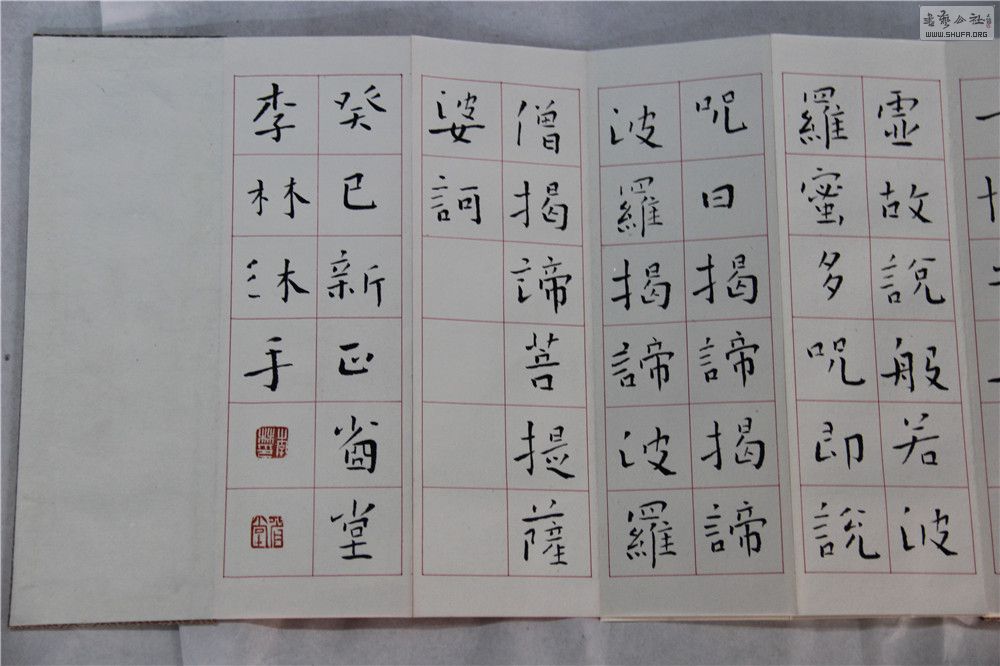 虛故說般若波
羅蜜多呪即說
呪曰揭諦揭諦
波羅揭諦波羅
僧揭諦菩提薩
婆訶
癸巳新正堂
李林沐手
書藝公社
WWW.SHUFA.ORG